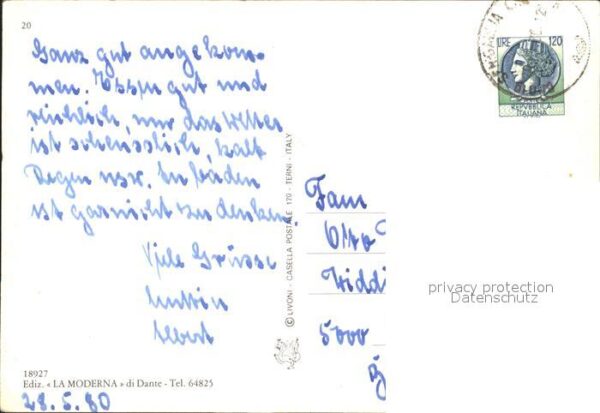 20
Ganz gut angekom-
men. Essen gut und
reichlich, nur das Wetter
ist scheusslich, kalt
Regen usw. An baden
ist garnicht zu denken.
Viele Grüsse
Albert
18927
Ediz. «LA MODERNA» di Dante - Tel. 64825
28.5.80
© LIVONI - CASELLA POSTALE 170 - TERNI - ITALY
LIRE 120
REPVBBLICA
ITALIANA
Fam
Otto
Widdi
5000
privacy protection
Datenschutz